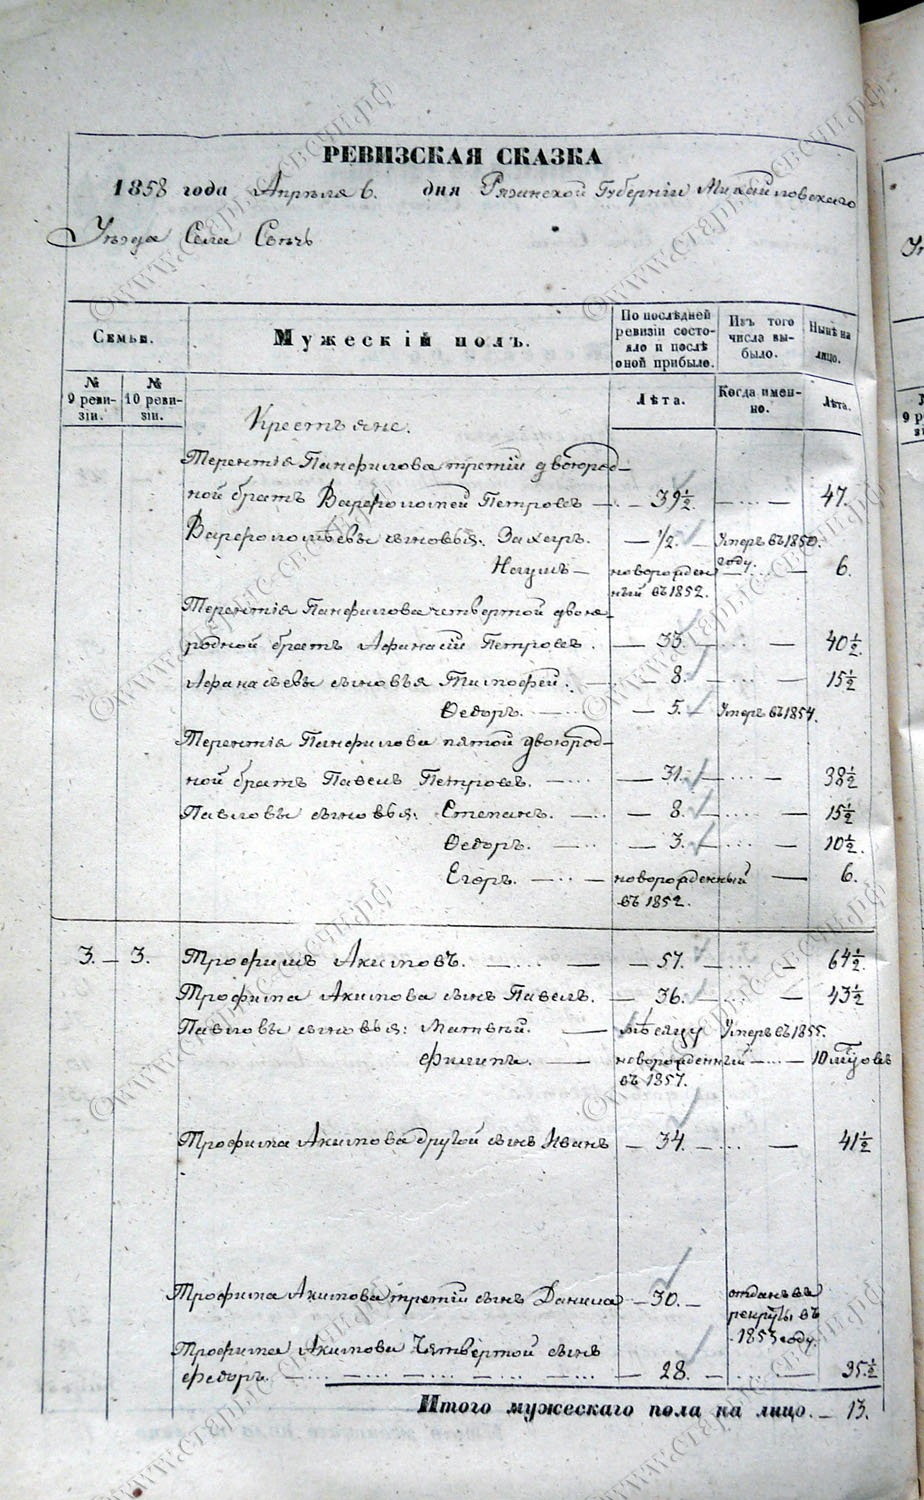 РЕВИЗСКАЯ СКАЗКА
1858 года Апрѣля 6. дня Рязанской Губерніи Михайловскаго
Уѣзда Села Сѣнч
Семьи.
Мужескій полъ.
По послѣдней ревизіи состо-
яло и послѣ оной прибыло.
Изъ того числа вы-
было.
Нынѣ на лицо.
№ 9 реви-
зіи.
№ 10 реви-
зіи.
Лѣта.
Когда имен-
но.
Лѣта.
Крестьяне.
Терентія Панфилова третій двоюрод-
ной братъ Варфоломей Петровъ — 39½. — 47.
Варфоломѣевы сыновья: Захаръ. — ½. — Умеръ въ 1850. году.
Наумъ — новорожден ный въ 1852. — 6.
Терентія Панфилова четвертой двою-
родной братъ Афанасій Петровъ. — 33. — 40½.
Афанасьевы сыновья Тимофей. — 8. — 15½
Ѳедоръ. — 5. — Умеръ въ 1854.
Терентія Панфилова пятой двоюрод-
ной братъ Павелъ Петровъ. — 31. — 38½
Павловы сыновья: Степанъ. — 8. — 15½
Ѳедоръ. — 3. — 10½.
Егоръ. — новорожденный въ 1852. — 6.
3. — 3. Трофимъ Акимовъ. — 57. — 64½.
Трофима Акимова сынъ Павелъ. — 36. — 43½
Павловы сыновья: Матвѣй. — мѣсяцу Умеръ въ 1855.
Филипъ. — новорожденный въ 1857. — 10 мѣцовъ
Трофима Акимова другой сынъ Иванъ — 34. — 41½
Трофима Акимова третій сынъ Данила — 30. — отданъ въ рекруты въ 1853 году.
Трофима Акимова Четвертой сынъ
Федоръ. — 28. — 35½
Итого мужескаго пола на лицо. — 13.
©www.старыс-свсчи.рф